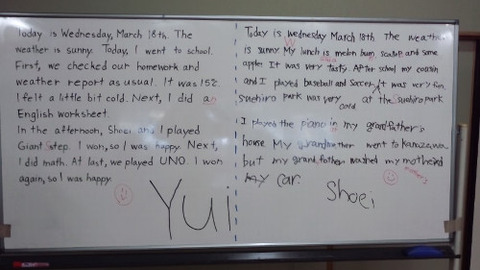 Today is Wednesday, March 18th. The
weather is sunny. Today, I went to school.
First, we checked our homework and
weather report as usual. It was 15℃.
I felt a little bit cold. Next, I did an
English worksheet.
In the afternoon, Shoei and I played
Giant Step. I won, so I was happy. Next,
I did math. At last, we played UNO. I won
again, so I was happy.
Yui
Today is Wednesday March 18th The weather
is sunny My lunch is melon bun, and some
apples It was very tasty. After school my cousin
and I played baseball and Soccer, It was very fun
Suehiro park was very cold at the Suehiro park
I played the piano in my grandfather's
house My Grandmother went to Kanazawa.
but my grandfather washed my
car.
Shoei